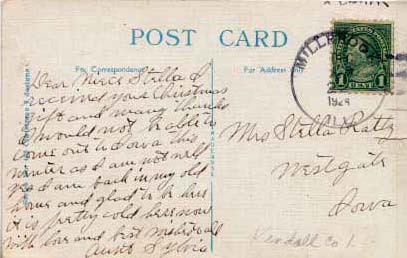 POST CARD
For Correspondence
For Address Only
MILLBROOK
1924
1 CENT 1
Dear Niece Stella I
received your Christmas
gift and many thanks
I would not be able to
come out to Iowa this
winter as I am not well
yes I am back in my old
home and glad to be here
it is pretty cold here now
with love and best wishes to all
Aunt Sylvia
Mrs Stella Ratty
Westgate
Iowa
Kendall Co